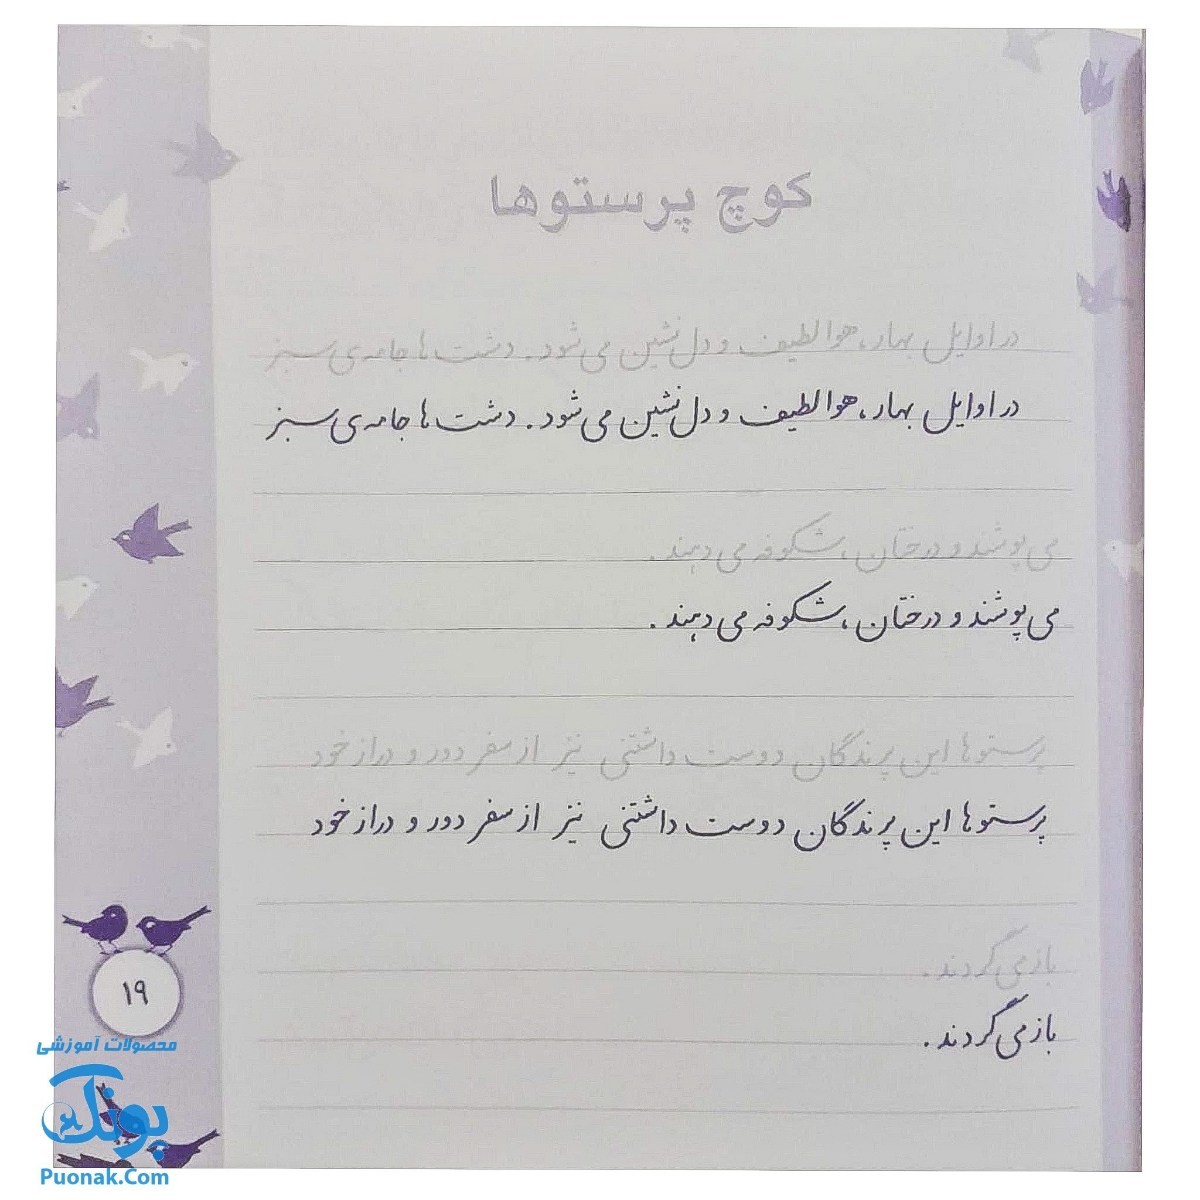 کوچ پرستوها
در اوایل بهار، هوا لطیف و دل نشین می شود. دشت ها جامه ی سبز
در اوایل بهار، هوا لطیف و دل نشین می شود. دشت ها جامه ی سبز
می پوشند و درختان، شکوفه می دهند.
می پوشند و درختان، شکوفه می دهند.
پرستوها این پرندگان دوست داشتنی نیز از سفر دور و دراز خود
پرستوها این پرندگان دوست داشتنی نیز از سفر دور و دراز خود
باز می گردند.
باز می گردند.
۱۹
محصولات آموزشی
پونک
Puonak.Com